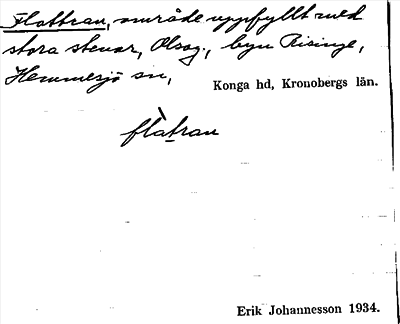 Flattran, område uppfyllt med
stora stenar, Olsag., byn Risinge,
Hemmesjö sn,
Konga hd, Kronobergs län.
flàtran
Erik Johannesson 1934.